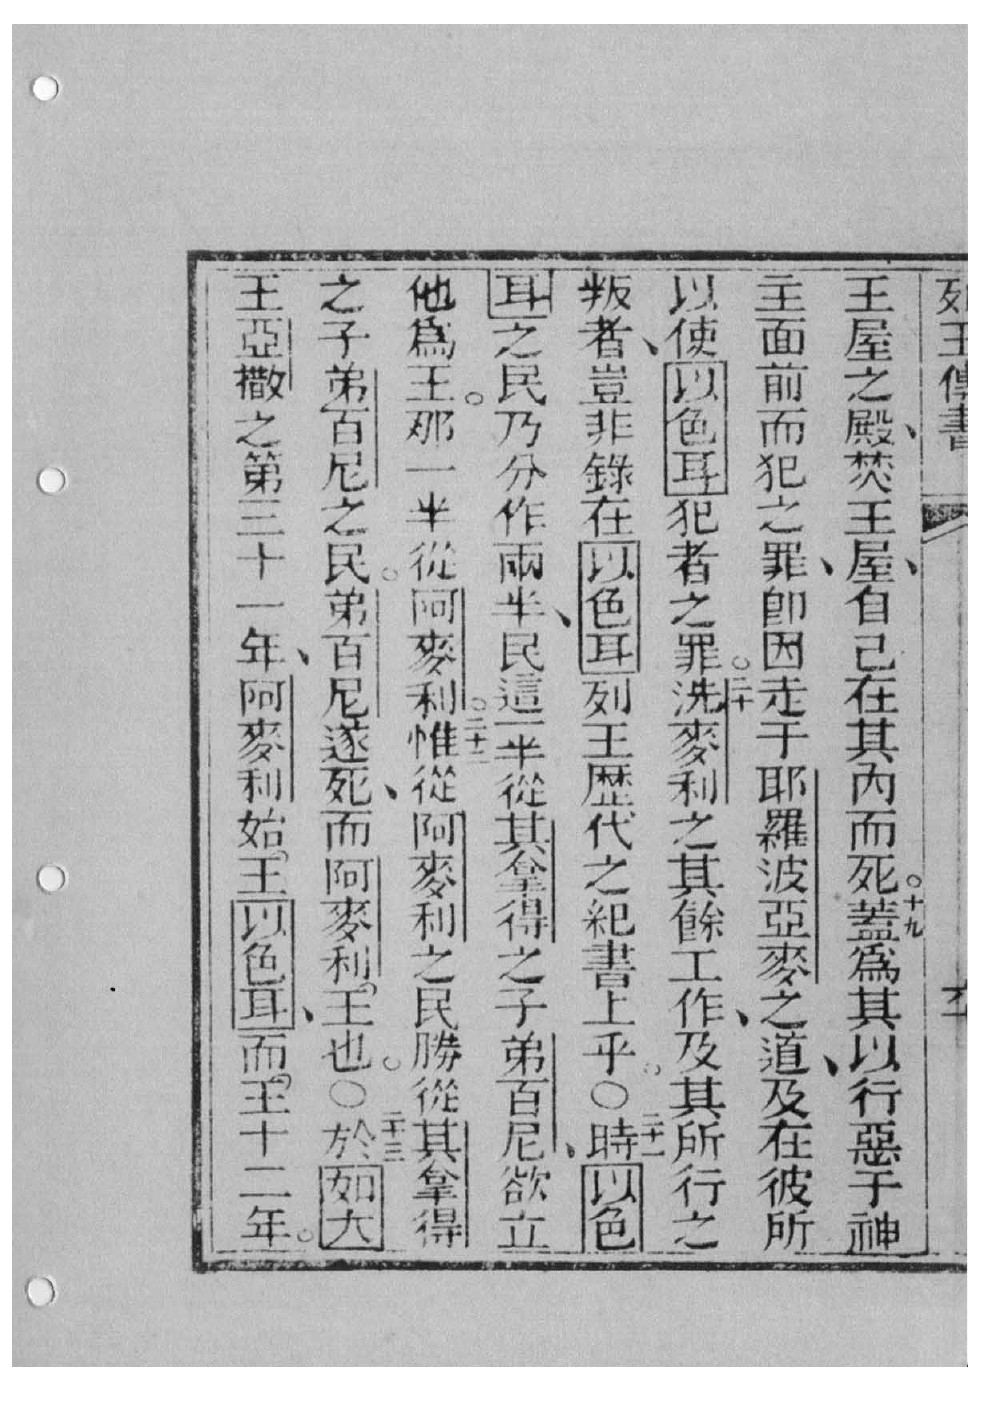 列王傳書
王屋之殿、焚王屋、自己在其內而死。十九蓋爲其以行惡于神
主面前而犯之罪、卽因走于耶羅波亞麥之道、及在彼所
以使以色耳犯者之罪。二十洗麥利之其餘工作、及其所行之
叛者、豈非錄在以色耳列王歷代之紀書上乎。○二十一時以色
耳之民乃分作兩半、民這一半從其拿得之子弟百尼、欲立
他爲王。那一半從阿麥利。二十二惟從阿麥利之民勝從其拿得
之子弟百尼之民。弟百尼遂死、而阿麥利。王也。○二十三於如大
王亞撒之第三十一年、阿麥利始。王以色耳、而。王十二年。